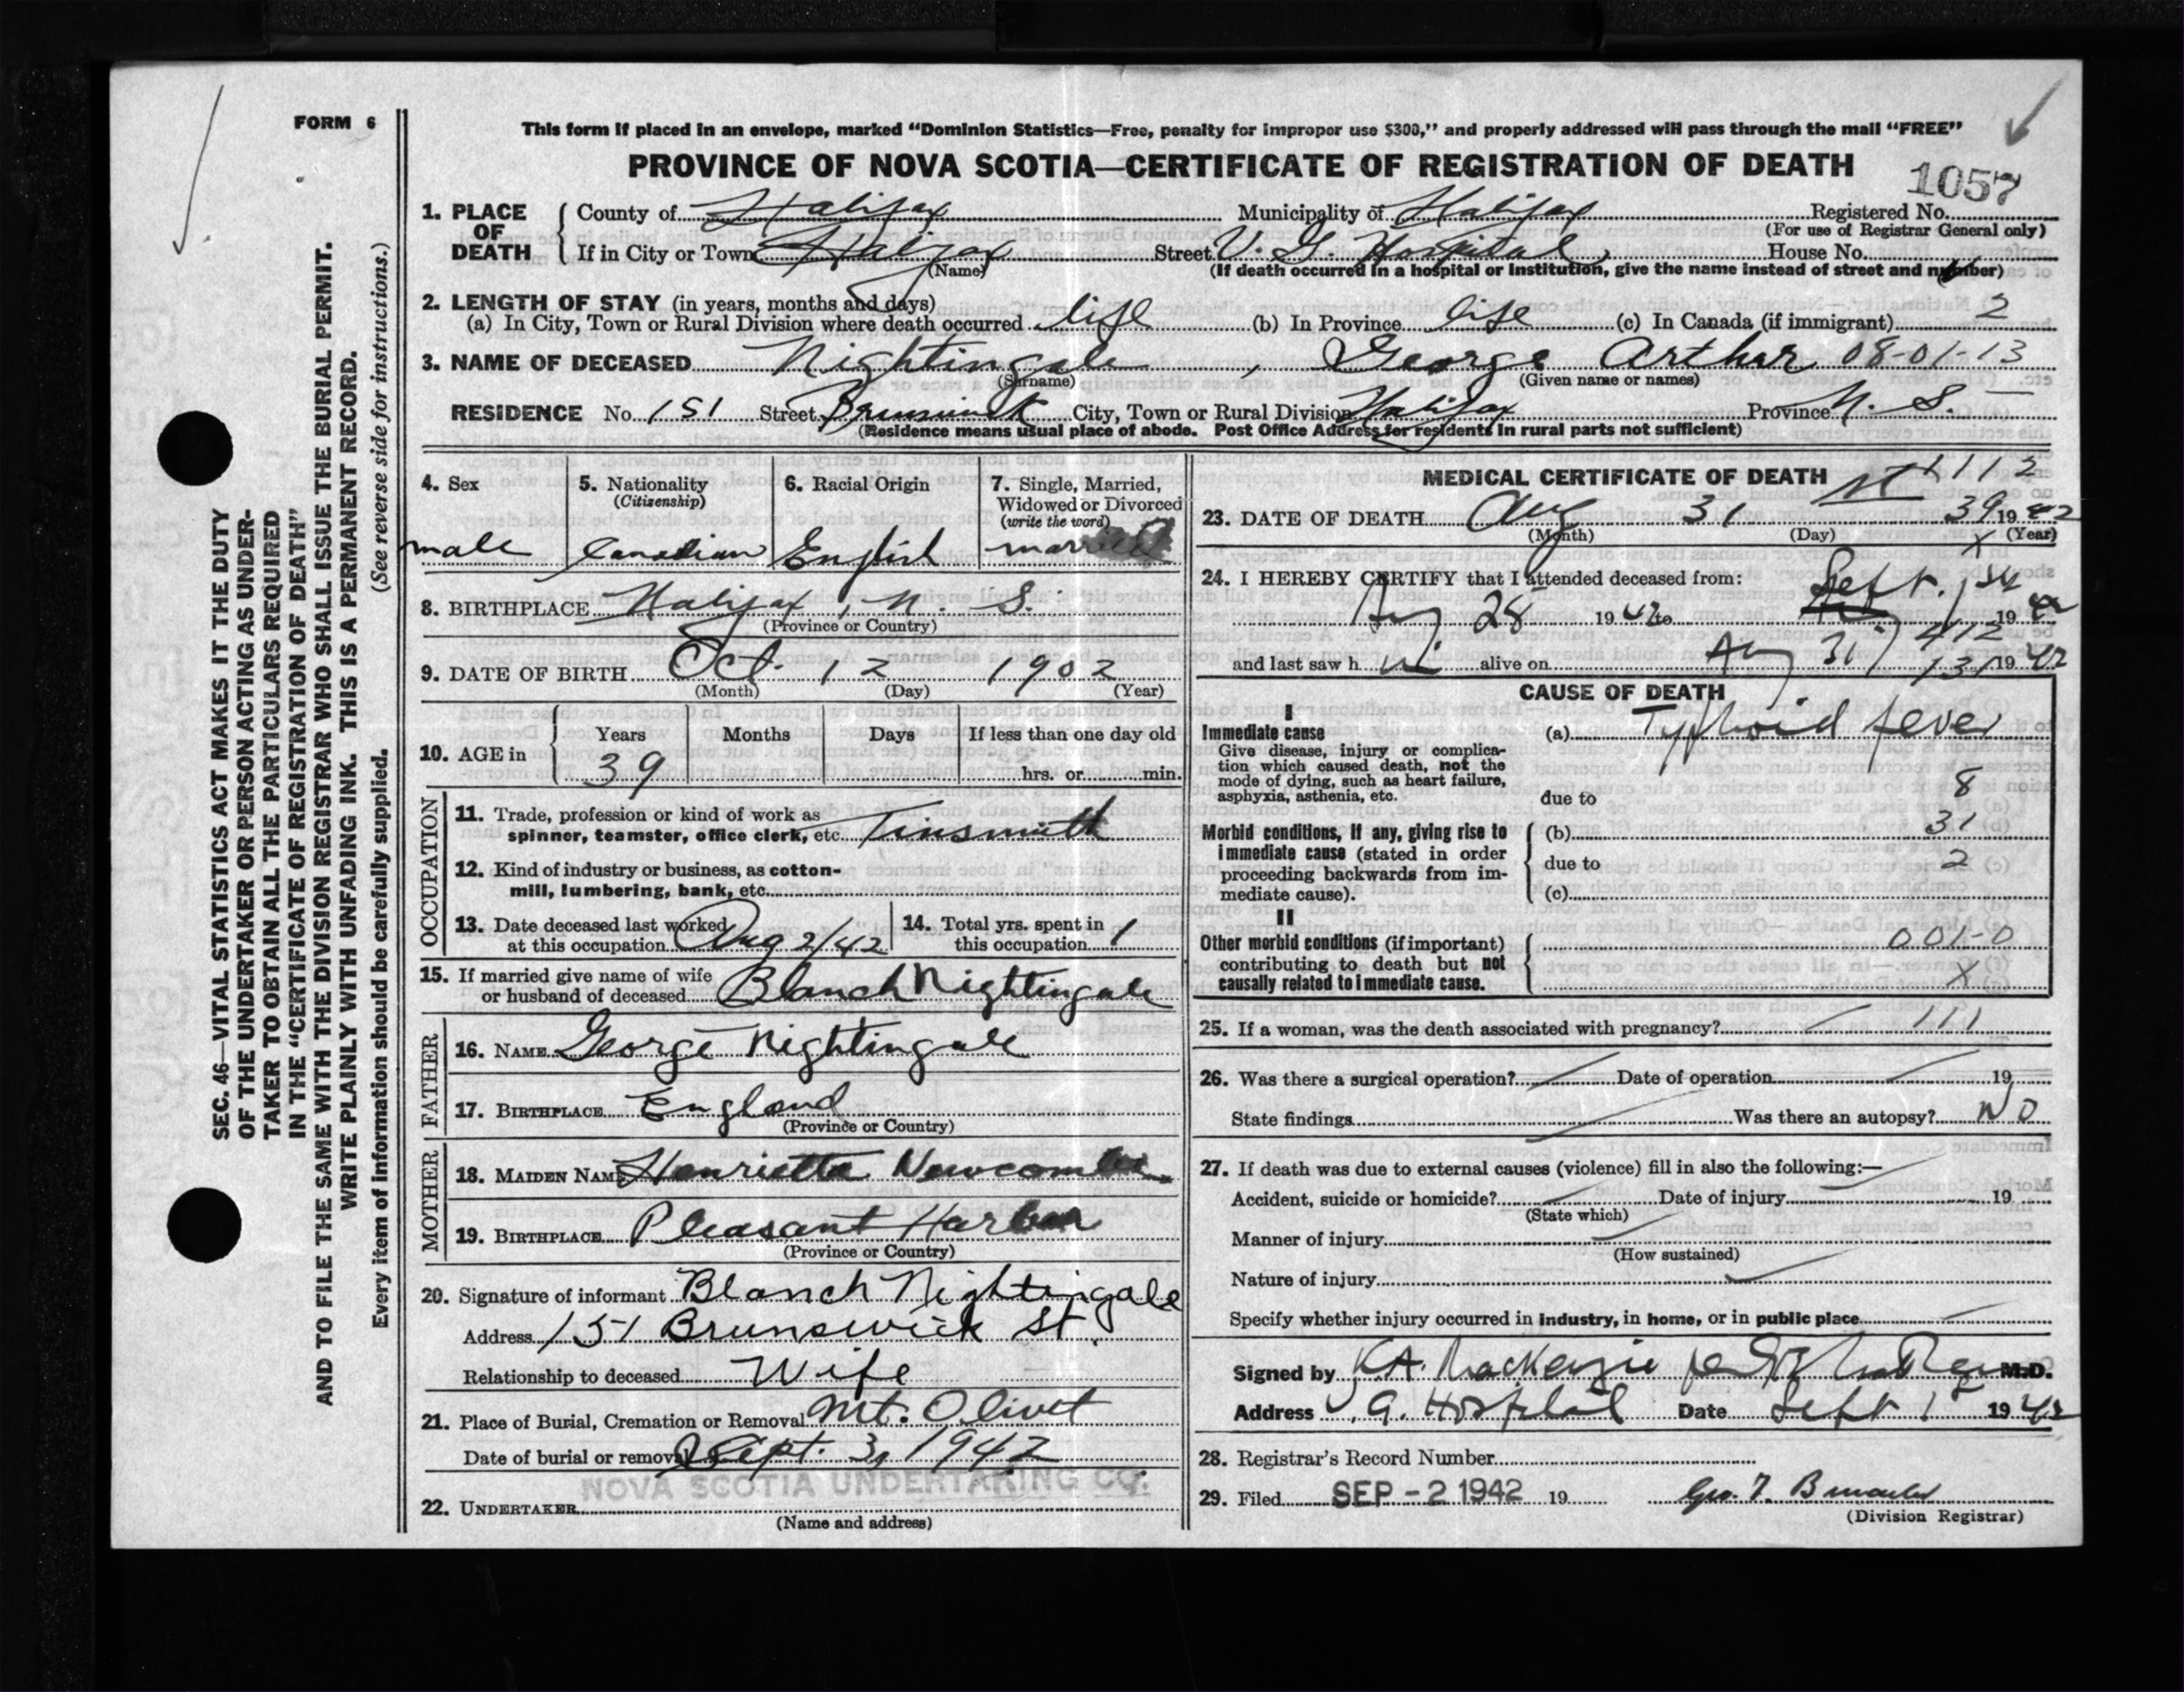 FORM 6
This form if placed in an envelope, marked "Dominion Statistics—Free, penalty for improper use $300," and properly addressed will pass through the mail "FREE"
PROVINCE OF NOVA SCOTIA—CERTIFICATE OF REGISTRATION OF DEATH
1057
1. PLACE OF DEATH { County of Halifax Municipality of Halifax Registered No.
(For use of Registrar General only)
If in City or Town Halifax Street V. G. Hospital House No.
(Name) (If death occurred in a hospital or institution, give the name instead of street and number)
2. LENGTH OF STAY (in years, months and days)
(a) In City, Town or Rural Division where death occurred life (b) In Province life (c) In Canada (if immigrant) 2
3. NAME OF DECEASED Nightingale, George Arthur 08-01-13
(Surname) (Given name or names)
RESIDENCE No. 151 Street Brunswick City, Town or Rural Division Halifax Province N. S.
(Residence means usual place of abode. Post Office Address for residents in rural parts not sufficient)
4. Sex 5. Nationality 6. Racial Origin 7. Single, Married,
(Citizenship) Widowed or Divorced
(write the word)
male Canadian English married
8. BIRTHPLACE Halifax, N. S.
(Province or Country)
9. DATE OF BIRTH Oct. 12 1902
(Month) (Day) (Year)
10. AGE in { Years Months Days If less than one day old
39 hrs. or min.
OCCUPATION
11. Trade, profession or kind of work as
spinner, teamster, office clerk, etc. Tinsmith
12. Kind of industry or business, as cotton-
mill, lumbering, bank, etc.
13. Date deceased last worked 14. Total yrs. spent in
at this occupation Aug 2/42 this occupation 1
15. If married give name of wife
or husband of deceased Blanch Nightingale
FATHER
16. NAME George Nightingale
17. BIRTHPLACE England
(Province or Country)
MOTHER
18. MAIDEN NAME Henrietta Newcombe
19. BIRTHPLACE Pleasant Harbor
(Province or Country)
20. Signature of informant Blanch Nightingale
Address 151 Brunswick St.
Relationship to deceased Wife
21. Place of Burial, Cremation or Removal Mt. Olivet
Date of burial or removal Sept. 3, 1942
NOVA SCOTIA UNDERTAKING CO.
22. UNDERTAKER
(Name and address)
MEDICAL CERTIFICATE OF DEATH
1112
23. DATE OF DEATH Aug 31 39 1942
(Month) (Day) (Year)
X
24. I HEREBY CERTIFY that I attended deceased from:
Aug 28 1942 to Sept. 1st 19
412
and last saw h alive on Aug 31 131 1942
CAUSE OF DEATH
I
Immediate cause (a) Typhoid fever
Give disease, injury or complica-
tion which caused death, not the
mode of dying, such as heart failure,
asphyxia, asthenia, etc. due to 8
Morbid conditions, if any, giving rise to (b) 31
immediate cause (stated in order due to 2
proceeding backwards from im-
mediate cause). (c)
II
Other morbid conditions (if important) 001-0
contributing to death but not
causally related to immediate cause. X
25. If a woman, was the death associated with pregnancy? 111
26. Was there a surgical operation? Date of operation 19
State findings Was there an autopsy? No
27. If death was due to external causes (violence) fill in also the following:—
Accident, suicide or homicide? Date of injury 19
(State which)
Manner of injury
(How sustained)
Nature of injury
Specify whether injury occurred in industry, in home, or in public place
Signed by K.A. MacKenzie per M.D.
Address V. G. Hospital Date Sept 1 1942
28. Registrar's Record Number
29. Filed SEP -2 1942 19 Geo. F.
(Division Registrar)
SEC. 46—VITAL STATISTICS ACT MAKES IT THE DUTY
OF THE UNDERTAKER OR PERSON ACTING AS UNDER-
TAKER TO OBTAIN ALL THE PARTICULARS REQUIRED
IN THE "CERTIFICATE OF REGISTRATION OF DEATH"
AND TO FILE THE SAME WITH THE DIVISION REGISTRAR WHO SHALL ISSUE THE BURIAL PERMIT.
WRITE PLAINLY WITH UNFADING INK. THIS IS A PERMANENT RECORD.
Every item of information should be carefully supplied. (See reverse side for instructions.)